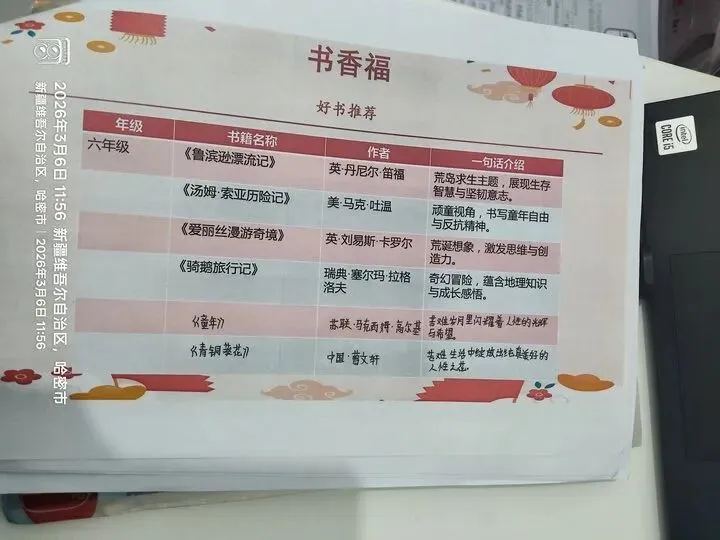 书香福
好书推荐
年级 书籍名称 作者 一句话介绍
六年级 《鲁滨逊漂流记》 英·丹尼尔·笛福 荒岛求生主题，展现生存
智慧与坚韧意志。
《汤姆·索亚历险记》 美·马克·吐温 顽童视角，书写童年自由
与反抗精神。
《爱丽丝漫游奇境》 英·刘易斯·卡罗尔 荒诞想象，激发思维与创
造力。
《骑鹅旅行记》 瑞典·塞尔玛·拉格
洛夫 奇幻冒险，蕴含地理知识
与成长感悟。
《童年》 苏联·马克西姆·高尔基 苦难岁月里闪耀着人性的光辉
与希望。
《青铜葵花》 中国·曹文轩 苦难生活中绽放出纯真美好的
人性之花。
intel
CORE i5
2026年3月6日 11:56 新疆维吾尔自治区，哈密市
新疆维吾尔自治区，哈密市 | 2026年3月6日 11:56